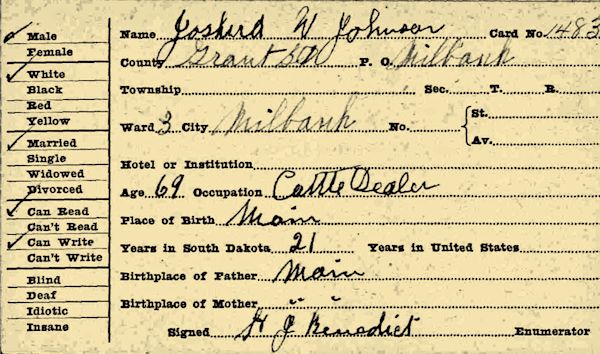 Male
Female
White
Black
Red
Yellow
Married
Single
Widowed
Divorced
Can Read
Can't Read
Can Write
Can't Write
Blind
Deaf
Idiotic
Insane
Name W Johnson Card No. 1483
County Grant SD P. O. Milbank
Township Sec. T. R.
Ward 3 City Milbank No. { St.
Av.
Hotel or Institution
Age 69 Occupation Cattle Dealer
Place of Birth Main
Years in South Dakota 21 Years in United States
Birthplace of Father Main
Birthplace of Mother " "
Signed H J Benedict Enumerator